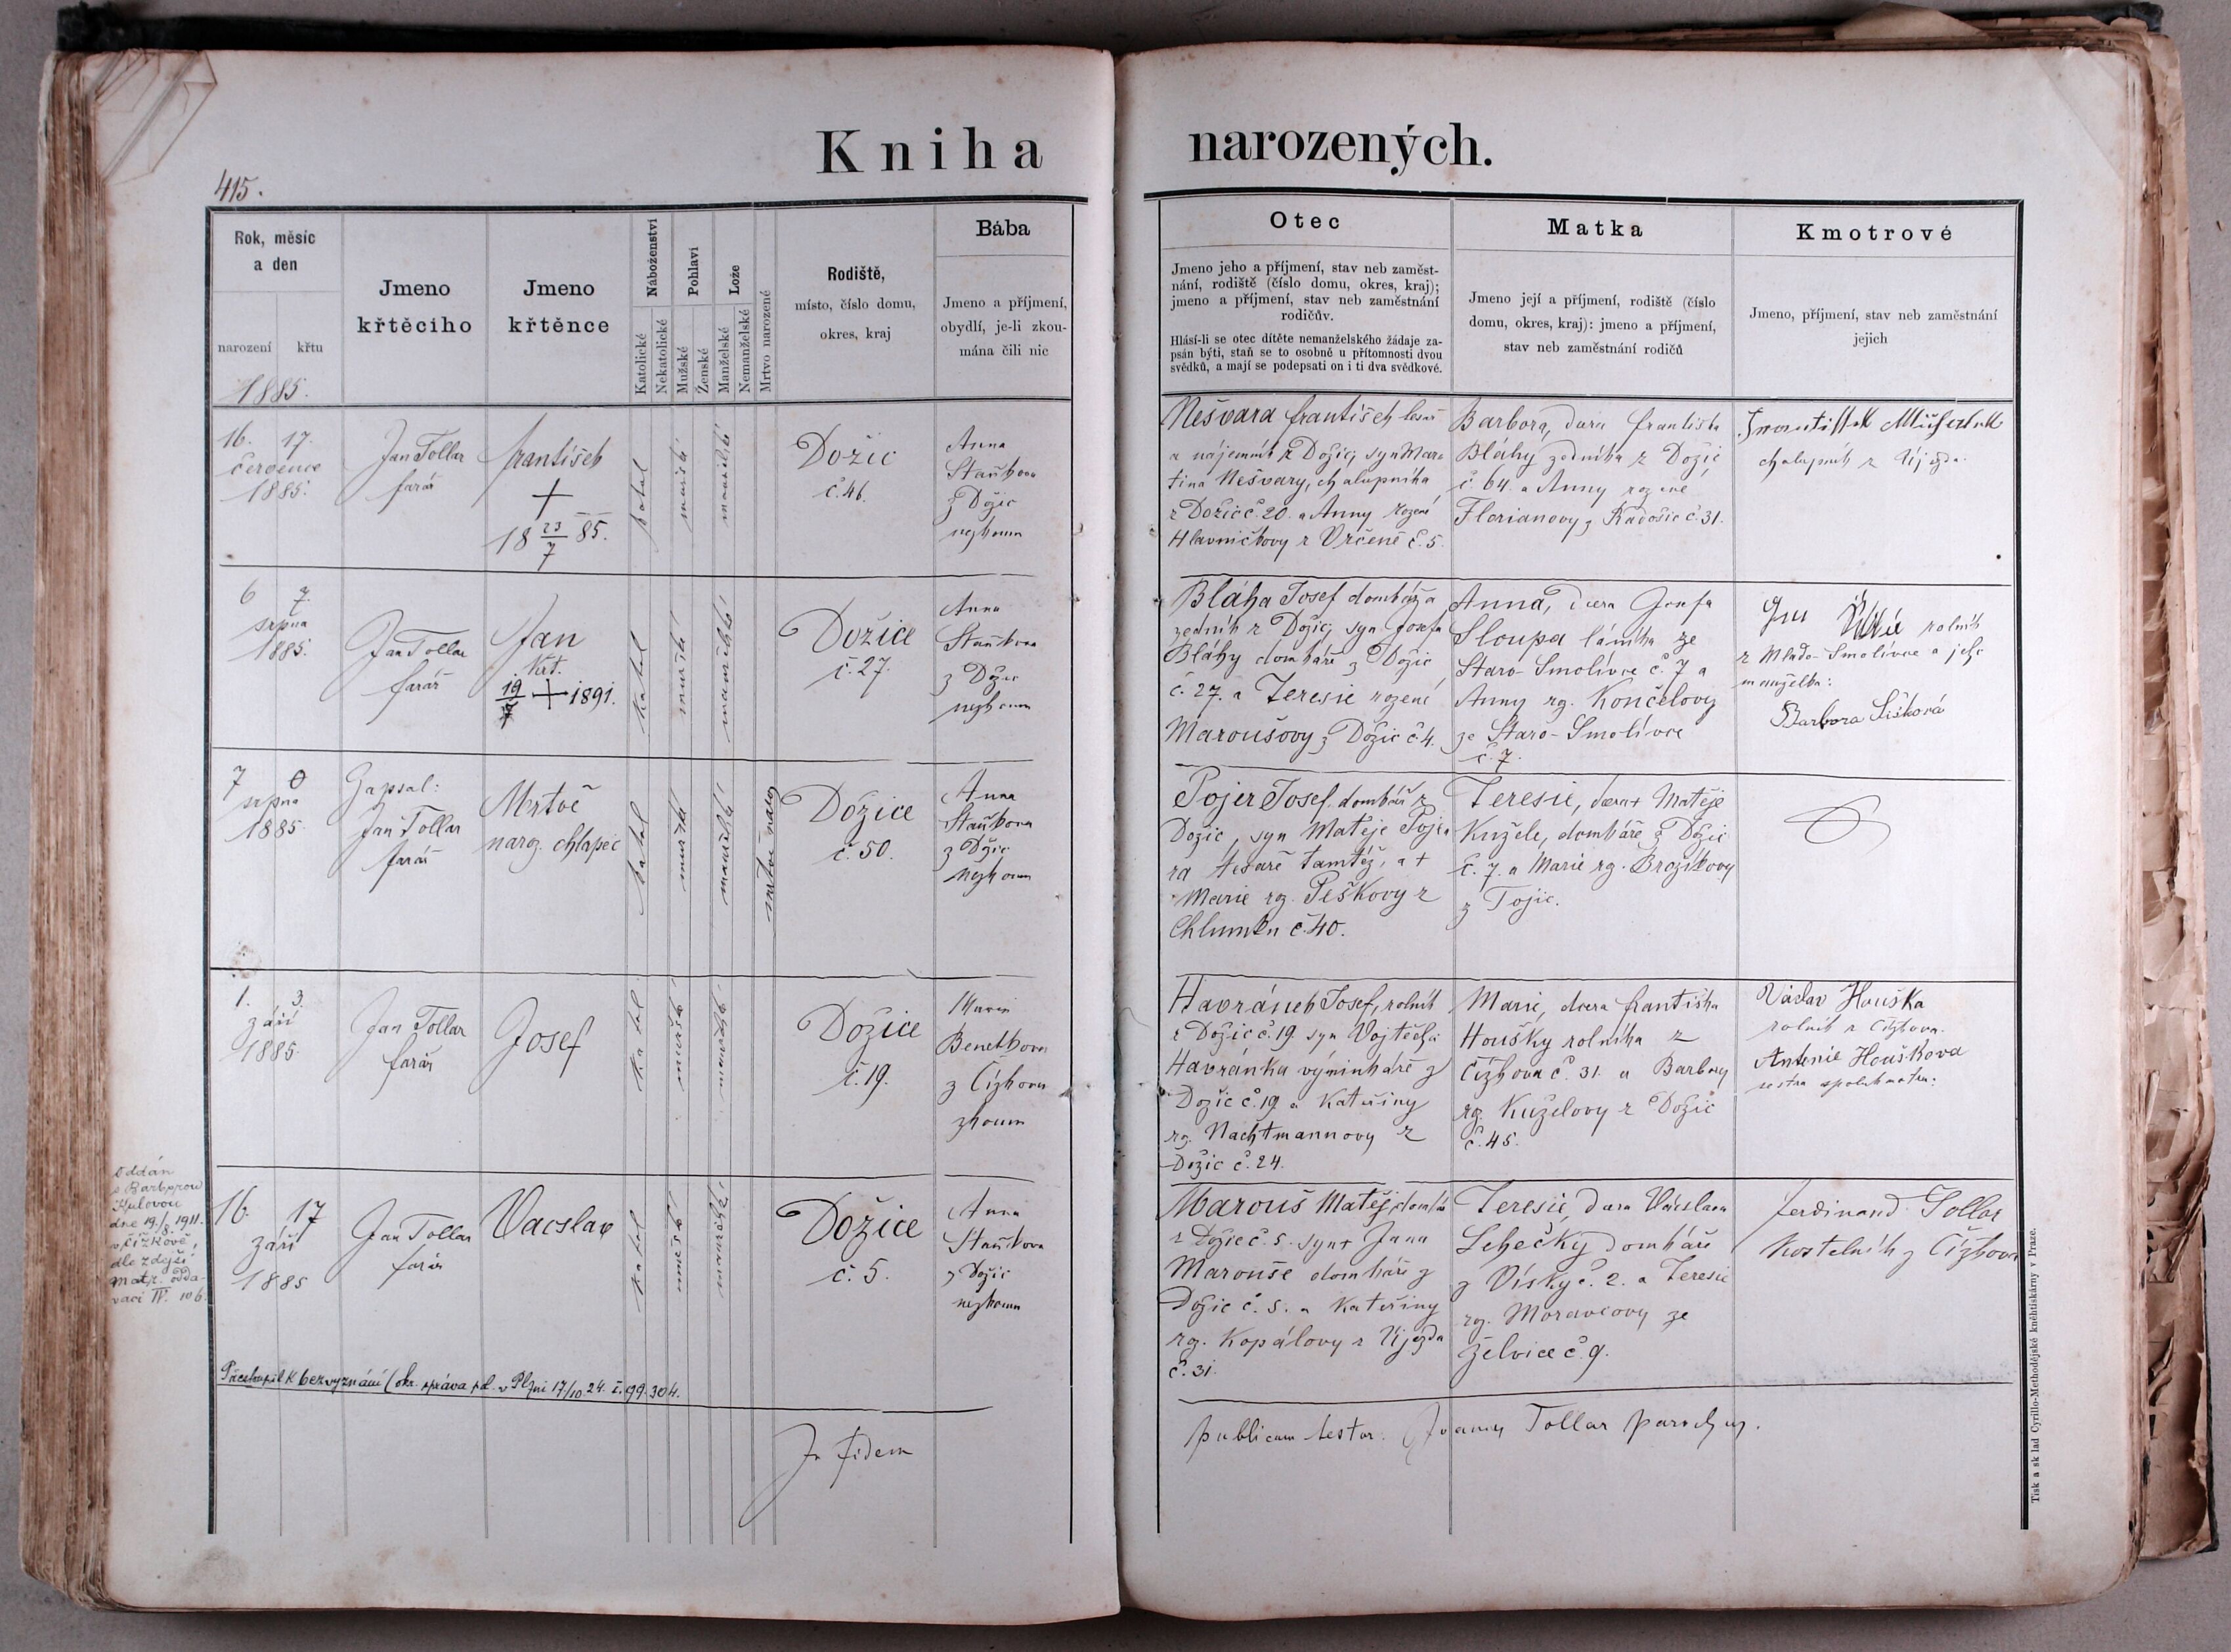 Kniha narozených.
415.
Rok, měsíc
a den
narození křtu
1885.
Jmeno
křtěcího
Jmeno
křtěnce
Náboženství
Katolické
Nekatolické
Pohlaví
Mužské
Ženské
Lože
Manželské
Nemanželské
Mrtvo narozené
Rodiště,
místo, číslo domu,
okres, kraj
Bába
Jmeno a příjmení,
obydlí, je-li zkou-
mána čili nic
Otec
Jmeno jeho a příjmení, stav neb zaměst-
nání, rodiště (číslo domu, okres, kraj);
jmeno a příjmení, stav neb zaměstnání
rodičův.
Hlásí-li se otec dítěte nemanželského žádaje za-
psán býti, staň se to osobně u přítomnosti dvou
svědků, a mají se podepsati on i ti dva svědkové.
Matka
Jmeno její a příjmení, rodiště (číslo
domu, okres, kraj): jmeno a příjmení,
stav neb zaměstnání rodičů
Kmotrové
Jmeno, příjmení, stav neb zaměstnání
jejich
16. 17.
července
1885.
Jan Tollar
farář
František
+
18 23/7 85.
katol
mužské
manželské
Dožic
č. 46.
Anna
Staňkova
z Dožic
nezkoum
Nešvara František
a nájemník z Dožic, syn Mar
tina Nešvary, chalupníka
z Dožic č. 20. a Anny rozené
Hlavničkovy z Vrčeně č. 5.
Barbora, dcera Františka
Bláhy zedníka z Dožic
č. 64. a Anny rozené
Florianovy z Radošic č. 31.
chalupník z Újezda.
6 7.
srpna
1885.
Jan Tollar
farář
Jan
19/7 + 1891.
katol
mužské
manželské
Dožice
č. 27.
Anna
Staňkova
z Dožic
nezkoum
Bláha Josef domkář a
zedník z Dožic, syn Josefa
Bláhy domkáře z Dožic
č. 27. a Teresie rozené
Maroušovy z Dožic č. 4.
Anna, dcera Josefa
Sloupa láníka ze
Staro-Smolivce č. 7 a
Anny rz. Končelovy
ze Staro-Smolivce
č. 7.
rolník
z Mlado-Smolivce a jeho
manželka:
Barbora Šišková
7 0
srpna
1885.
Zapsal:
Jan Tollar
farář
Mrtvě
naroz. chlapec
katol
mužské
manželské
mrtvě naroz
Dožice
č. 50.
Anna
Staňkova
z Dožic
nezkoum
Pojer Josef, domkář z
Dožic, syn Matěje Poje
ra tesaře tamtéž, a +
Marie rz. Peškovy z
Chlumku č. 40.
Teresie, dcera + Matěje
Kužele, domkáře z Dožic
č. 7. a Marie rz. Brožíkovy
z Tojic.
1. 3.
září
1885.
Jan Tollar
farář
Josef
katol
mužské
manželské
Dožice
č. 19.
Marie
Benetkova
z Čížkova
zkoum
Havránek Josef, rolník
z Dožic č. 19. syn Vojtěcha
Havránka výminkáře z
Dožic č. 19 a Kateřiny
rz. Nachtmannovy z
Dožic č. 24.
Marie, dcera Františka
Houšky rolníka z
Čížkova č. 31. a Barbory
rz. Kuželovy z Dožic
č. 45.
Václav Houška
rolník z Čížkova.
Antonie Houškova
sestra spolukmotra.
oddán
s Barborou
Kulovou
dne 19./8 1911.
v Čížkově,
dle zdejší
matr. odda-
vací IV. 106.
16. 17
září
1885
Jan Tollar
farář
Vacslav
katol
mužské
manželské
Dožice
č. 5.
Anna
Staňkova
z Dožic
nezkoum
Marouš Matěj, domkář
z Dožic č. 5. syn + Jana
Marouše domkáře z
Dožic č. 5. a Kateřiny
rz. Kopálovy z Újezda
č. 31.
Teresie, dcera Václava
Lehečky domkáře
z Vísky č. 2. a Teresie
rz. Moravcovy ze
Želvice č. 9.
Ferdinand Tollar
kostelník z Čížkova
Přestoupil k bezvyznání (okr. správa pol. v Plzni 17/10 24. I. 99.304.
In fidem publicam testor. Joannes Tollar parochus.
Tisk a sklad Cyrillo-Methodějské knihtiskárny v Praze.